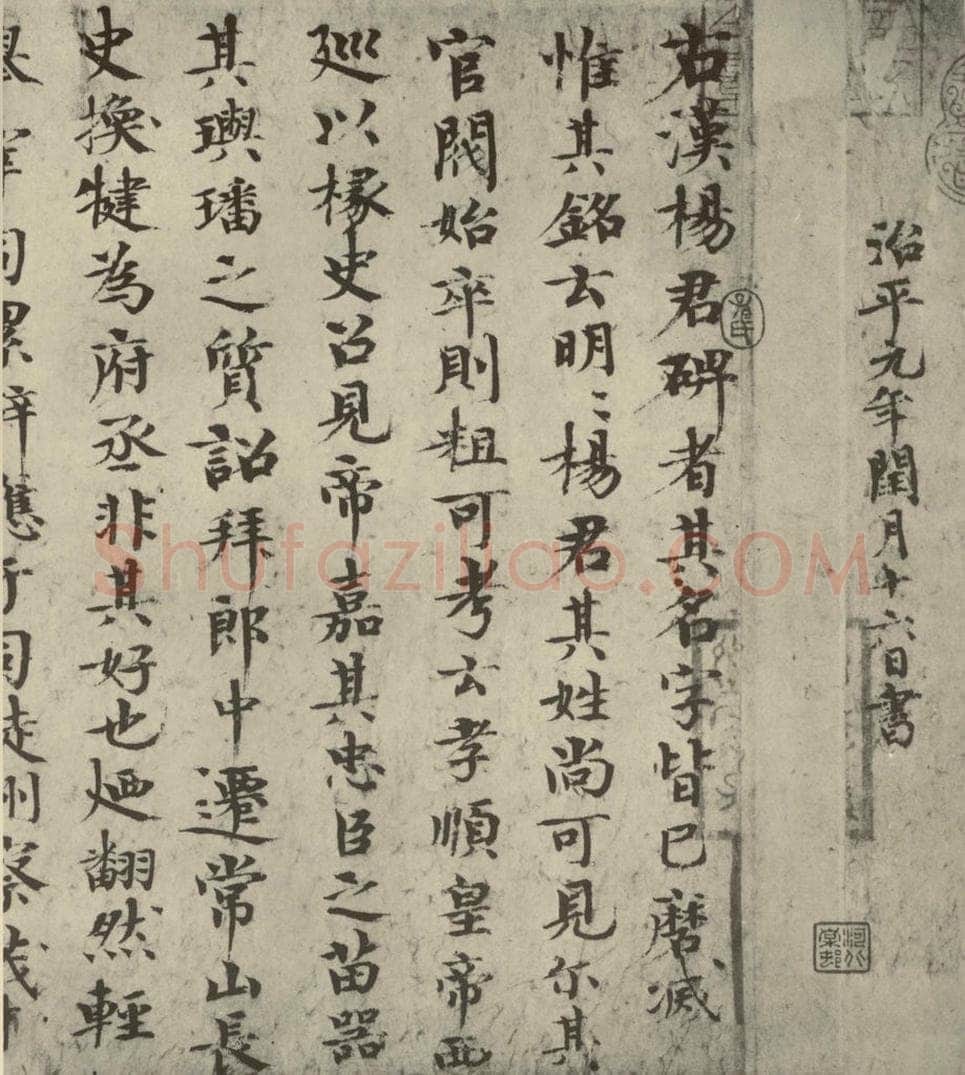 治平元年閏月十六日書
右漢楊君碑者其名字皆已磨滅
惟其銘云明〻楊君其姓尚可見尔其
官閥始卒則粗可考云孝順皇帝西
巡以椽史召見帝嘉其忠臣之苗器
其璵璠之質詔拜郎中遷常山長
史換犍為府丞非其好也迺翻然輕
舉宰司累辟應于司徒州察茂
Shufaziliao.COM